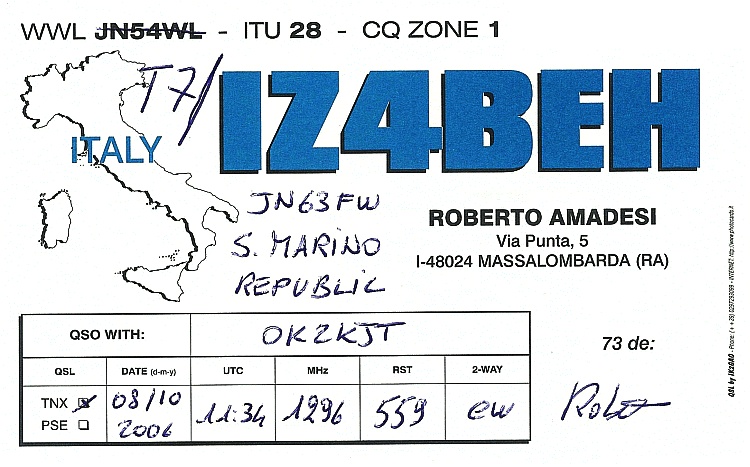 WWL JN54WL - ITU 28 - CQ ZONE 1
T7/IZ4BEH
ITALY
JN63FW
S. MARINO
REPUBLIC
ROBERTO AMADESI
Via Punta, 5
I-48024 MASSALOMBARDA (RA)
QSO WITH: OK2KJT
73 de:
QSL DATE (d-m-y) UTC MHz RST 2-WAY
TNX 08/10 2006 11:34 1296 559 cw
PSE